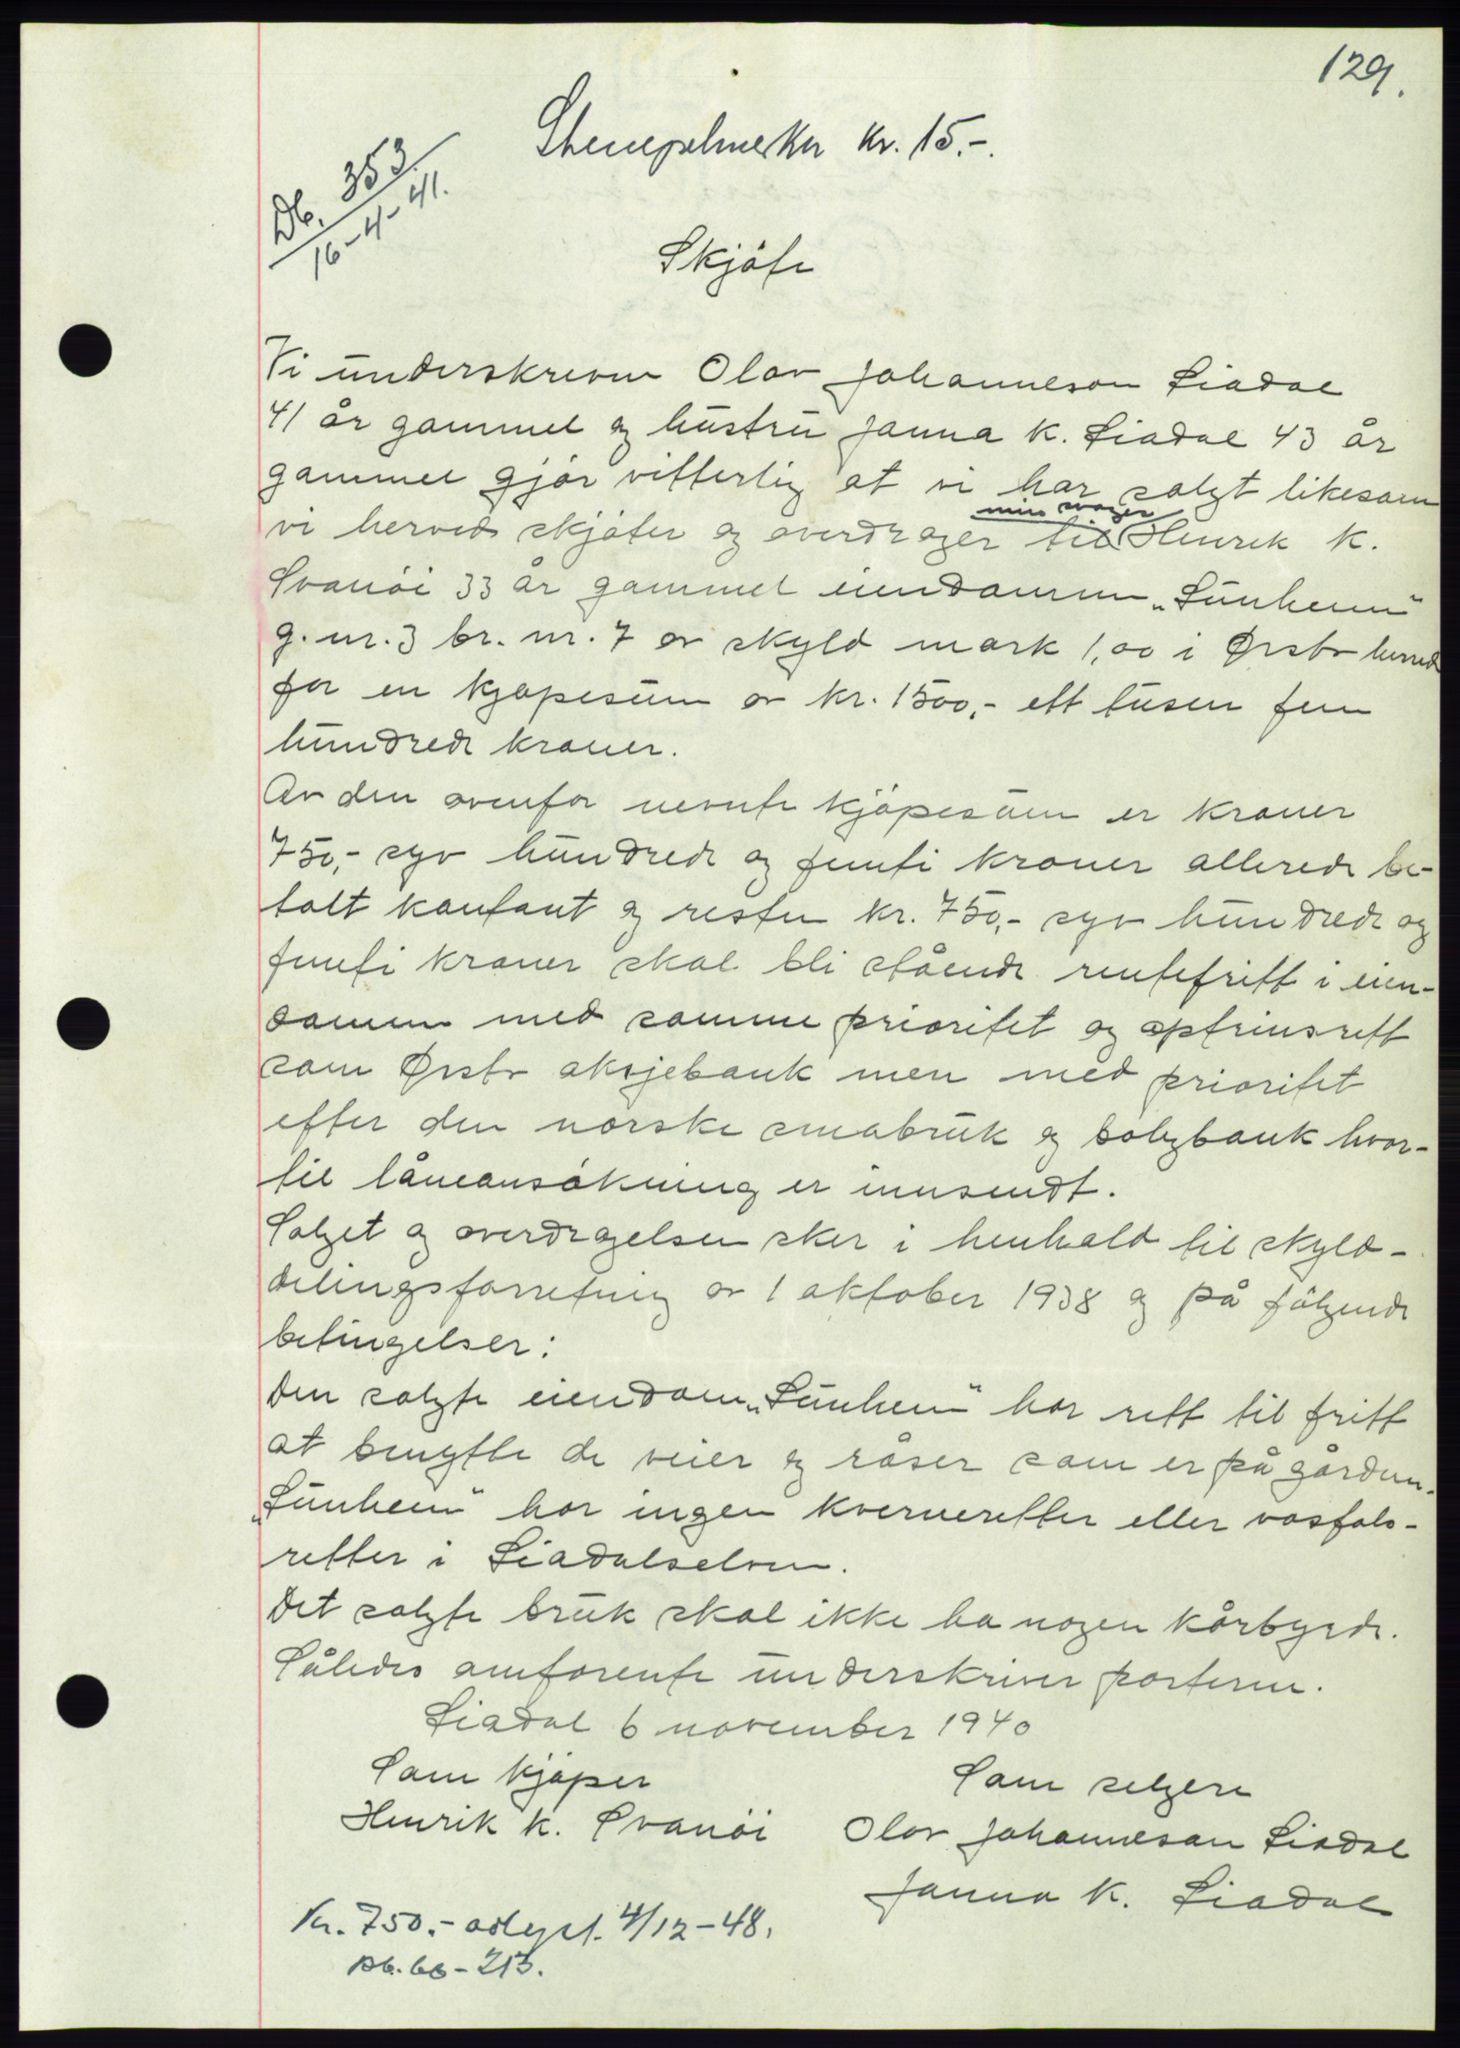 129.
Stempelmerker kr. 15.-.
Db. 353
16-4-41.
Skjøte
Vi underskrevne Olav Johanneson Liadal
41 år gammel og hustru Janna K. Liadal 43 år
gammel gjør vitterlig at vi har solgt likesom
min svoger
vi herved skjøter og overdrager til Henrik K.
Svanøi 33 år gammel eiendommen "Sunheim"
g. nr. 3 br. nr. 7 av skyld mark 1,00 i Ørsta herred
for en kjøpesum av kr. 1500,- ett tusen fem
hundrede kroner.
Av den ovenfor nevnte kjøpesum er kroner
750,- syv hundrede og femti kroner allerede be-
talt kontant og resten kr. 750,- syv hundrede og
femti kroner skal bli stående rentefritt i eien-
dommen med samme prioritet og optrinsrett
som Ørsta aksjebank men med prioritet
efter den norske småbruk og boligbank hvor-
til låneansøkning er innsendt.
Salget og overdragelsen sker i henhold til skyld-
delingsforretning av 1 oktober 1938 og på følgende
betingelser:
Den solgte eiendom "Sunheim" har rett til fritt
at benytte de veier og råser som er på gården.
"Sunheim" har ingen kverneretter eller vasfals-
retter i Liadalselven.
Det solgte bruk skal ikke ha nogen kårbyrde.
Således omforente underskriver partene.
Liadal 6 november 1940
Som kjøper
Som selgere
Henrik K. Svanøi
Olav Johanneson Liadal
Janna K. Liadal
Kr. 750.- avlyst. 4/12-48.
Pb. 66-213.